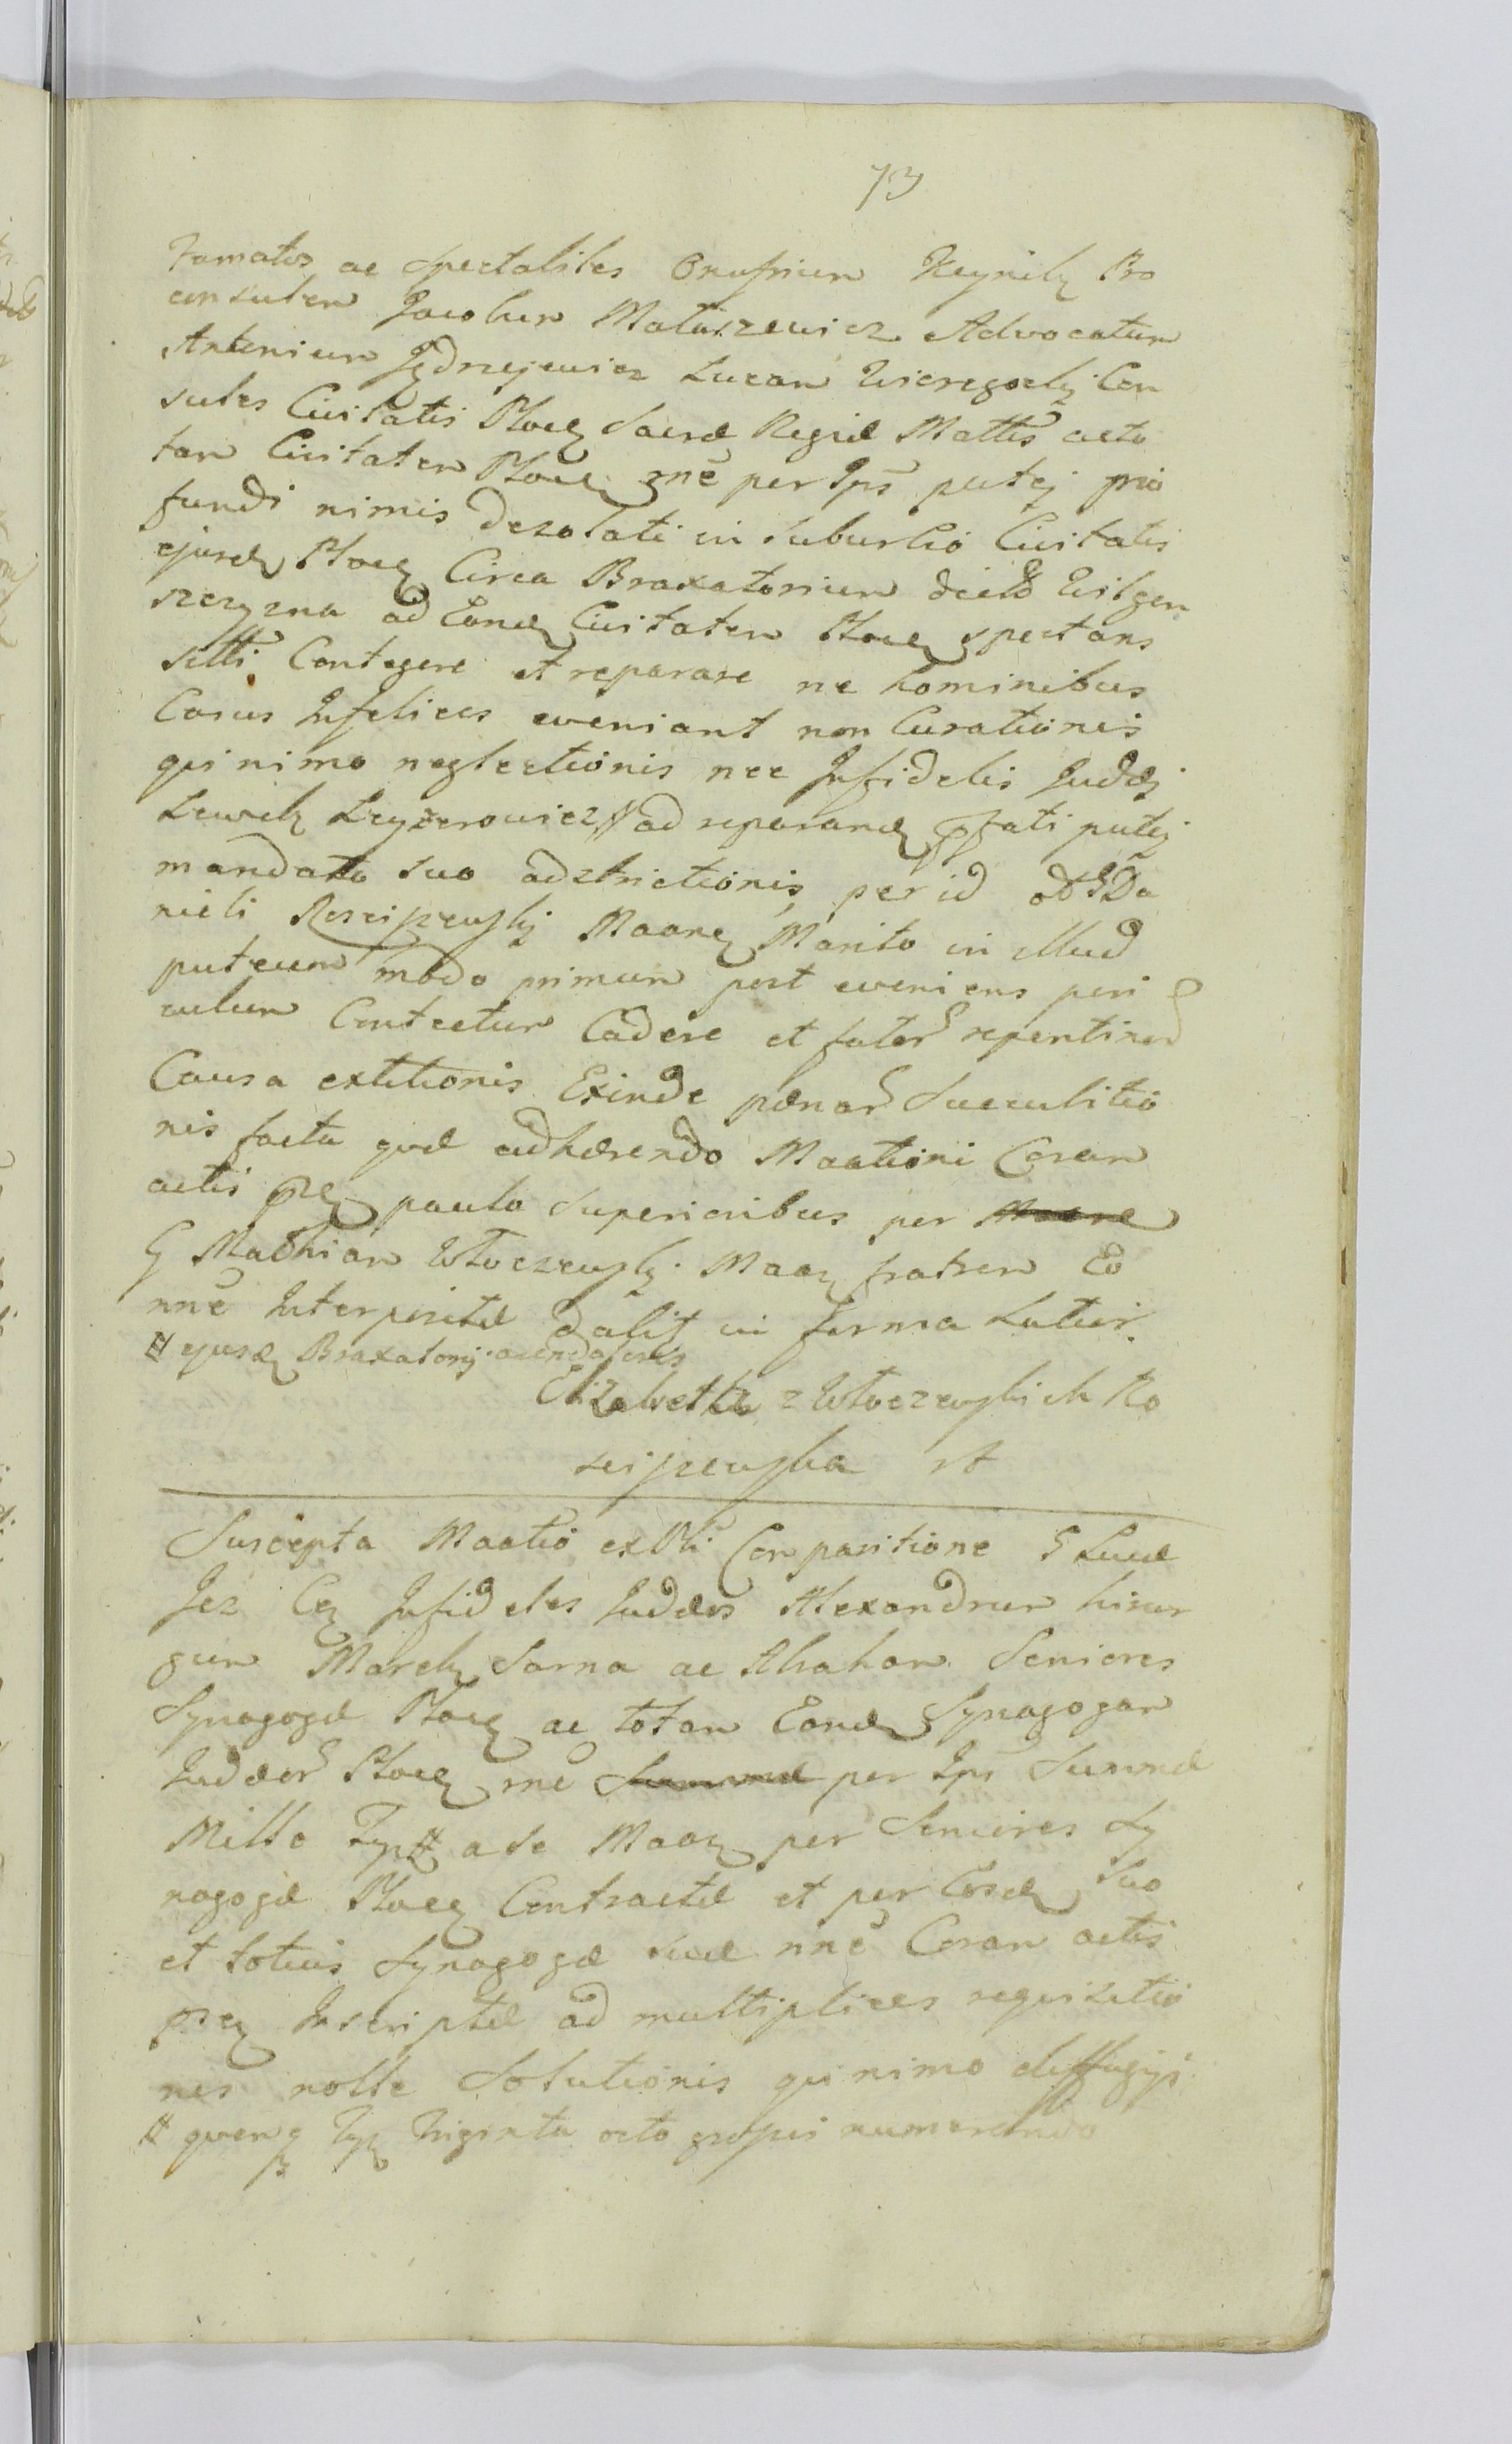 73
Famatos ac Spectabiles Onufrium Keynilz Pro
consulem Jacobum Matuszewicz Advocatum
Antonium Jędrzejewicz Lucam Consules
Civitatis Plocę Sacræ Regiæ Mattis ac to
tam Civitatem Plocę rnẽ per Ips putej pro
fundi nimis dezolati in Suburbio Civitatis
ejusdę Plocę Circa Braxatorium dictũ
szczyzna ad Eandę Civitatem Plocę spectans
Contegere et reparare ne hominibus
Casus Infelices eveniant non Curationis
quinimo neglectionis nec Infidelis Judæj
Lewek Leyzerowicz # ad reparandę pfati putej
mandato suo adstrictionis per id Da
nieli Rosciszewskj Maarę Marito in illud
puteum modo primum post eveniens peri
culum Contectum Cadere et fator repentinor
Causa extitionis Exinde pœnar Succubitio
nis facta quæ adhærendo Maationi Coram
actis pę paulo Superioribus per
G Mathiam Włoczewskj Maarę fratrem Eo
nnẽ Interpositæ dabit in forma Latior.
# ejusdę Braxatorij arendatoris
Elzbietta z Włoczewskich Ro
sciszewska
Suscepta Maatio ex Obti Comparitione G Lucæ
Jez Cę Infideles Judæos Alexandrum hirur
gum Marek Sarna ac Abaham Seniores
Synagogæ Plocę ac totam Eandę Synagogam
Judæor Plocę rnẽ Summæ per Ips Summæ
Mille Typ # a se Maarę per Seniores Sy
nagogæ Plocę Contractæ et per Eosdę suo
et totius Synagogæ suæ nnẽ Coram actis
pę Inscriptæ ad multiplices requisitio
nes nolle Solutionis quinimo diffugij
# quemę Typ Triginta octo grossis numerando